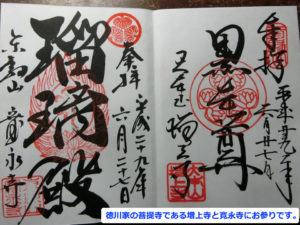 奉拝
平成二十九年
六月二十七日
黒本尊
大本山 増上寺
奉拝
平成二十九年
六月二十七日
瑠璃殿
東叡山 寛永寺
徳川家の菩提寺である増上寺と寛永寺にお参りです。